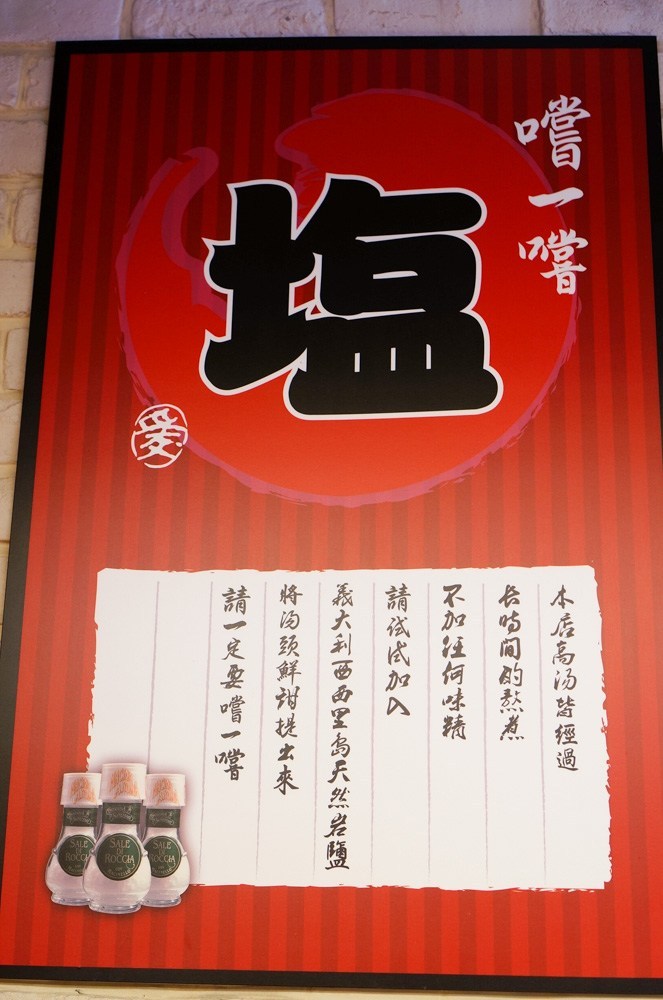 嚐一嚐
塩
本店高汤皆經過
长時間的熬煮
不加任何味精
請试试加入
義大利西西里岛天然岩鹽
將汤頭鮮甜提出來
請一定要嚐一嚐
SALE
DI
ROCCIA
SALE
DI
ROCCIA
SALE
DI
ROCCIA